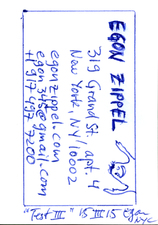 EGON ZIPPEL
319 Grand St. / apt. 4
New York, NY / 10002
egonzippel.com
egon348@gmail.com
+1 917 497 7200
"Test III" 15 III 15 egon
NYC